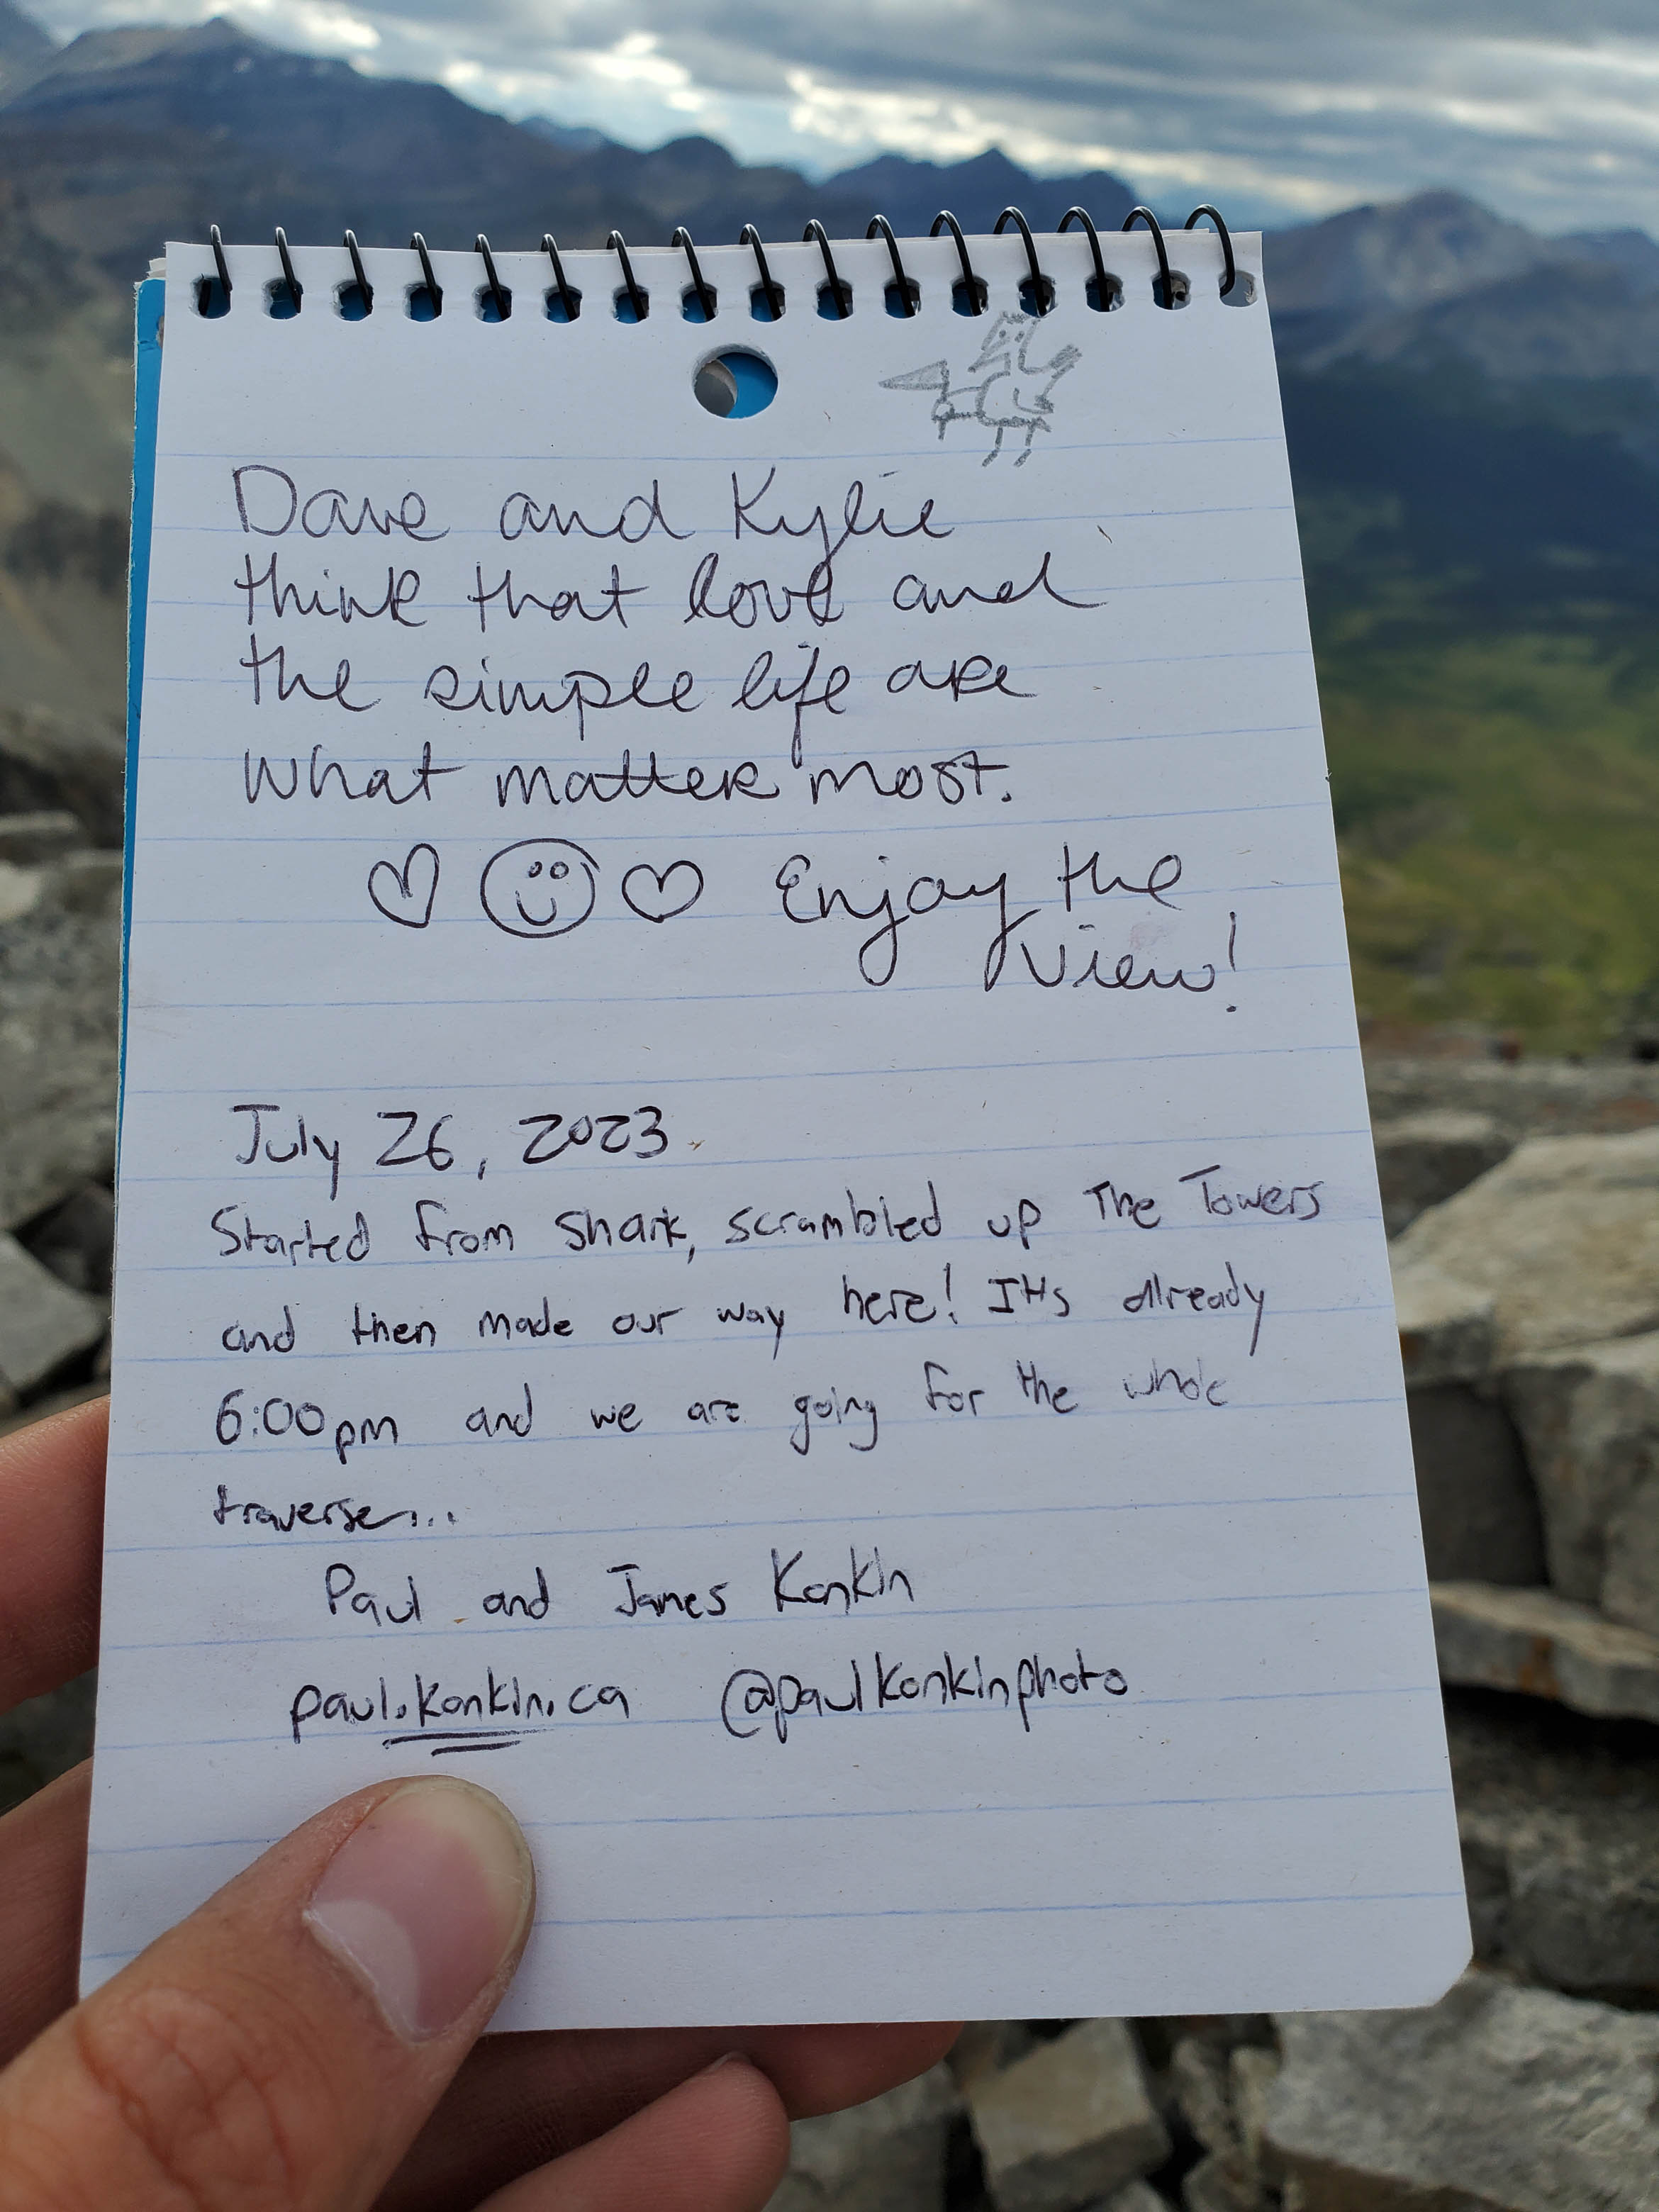 Dave and Kylie
think that love and
the simple life are
what matter most.
Enjoy the
view!
July 26, 2023
Started from Shark, scrambled up The Towers
and then made our way here! It's already
6:00pm and we are going for the whole
traverse...
Paul and James Konkin
paul.konkin.ca @paulkonkinphoto